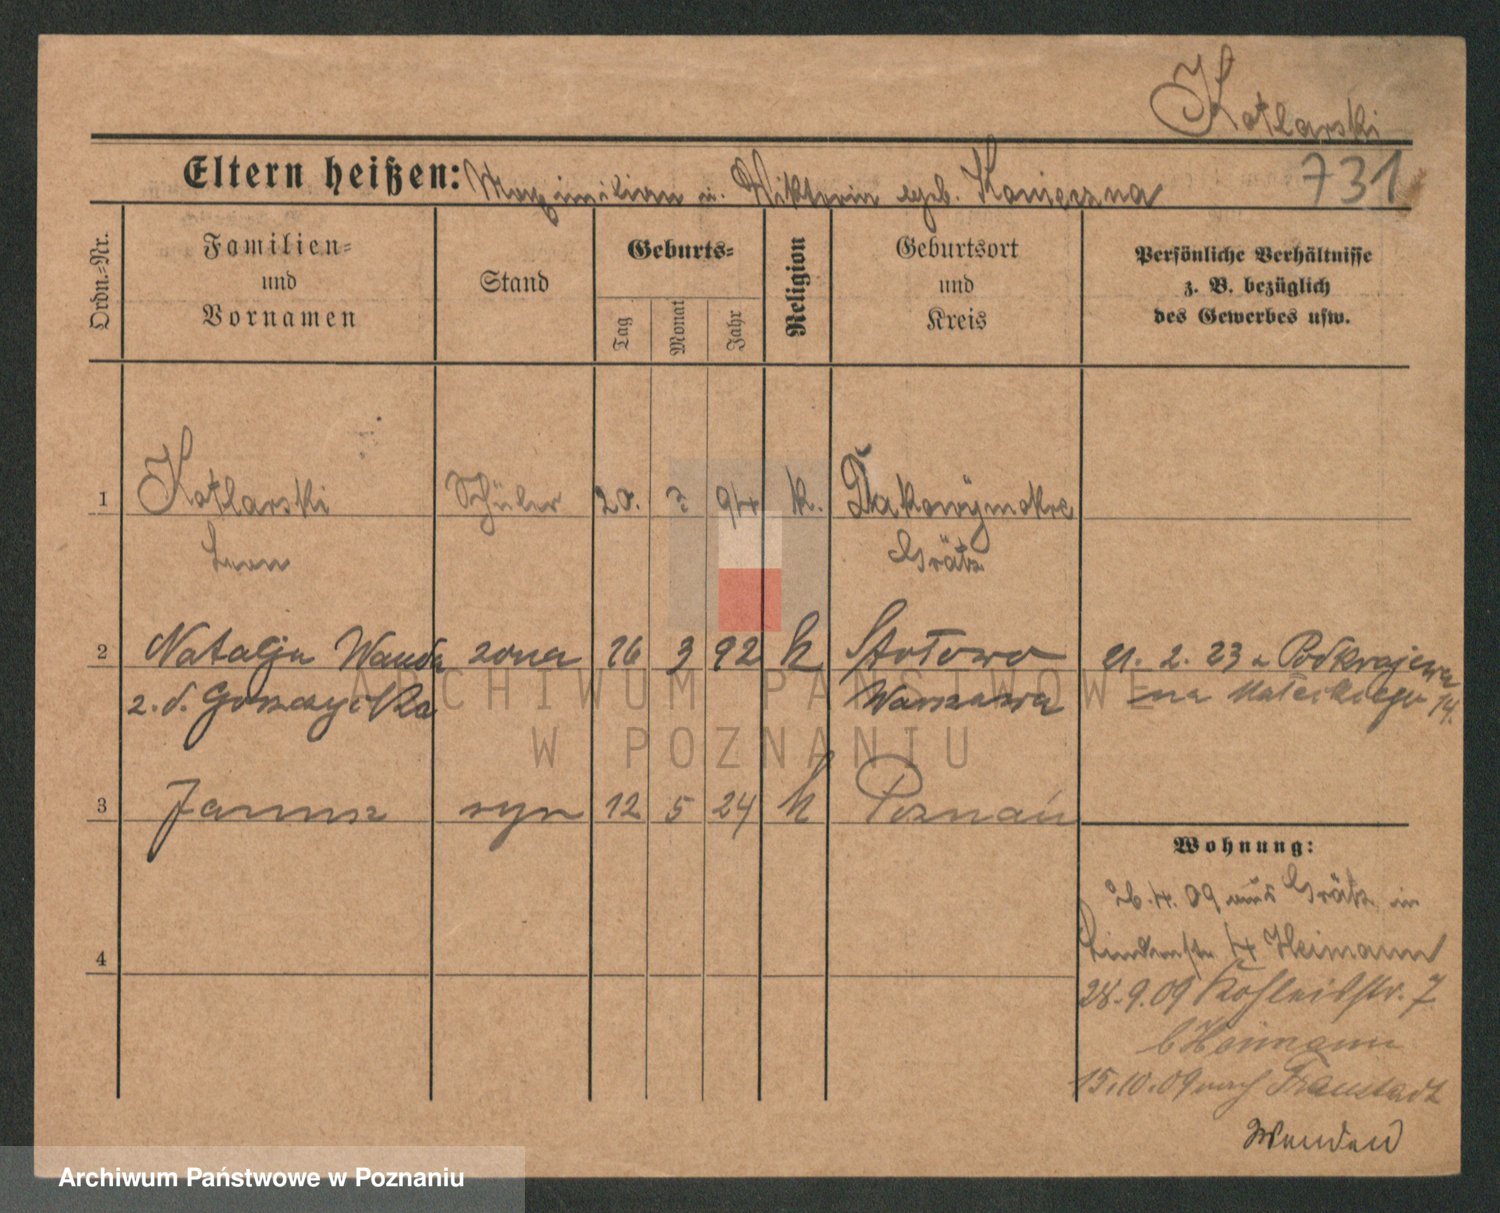 Kotlarski
Eltern heißen: Maximilian u. Viktoria geb. Konieczna
731
Ordn.-Nr.
Familien- und Vornamen
Stand
Geburts-
Tag
Monat
Jahr
Religion
Geburtsort und Kreis
Persönliche Verhältnisse z. B. bezüglich des Gewerbes usw.
1 Kotlarski Schüler 20. 94 k.
Leon Grätz
2 Natalja Wanda żona 16 3 92 k 21. 2. 23 z
z. d. Warszawa na Małeckiego 14.
3 Janusz syn 12 5 24 k Poznań
4
Wohnung:
26.4.09 aus Grätz in
Lindenstr. 4 Heimann
28.9.09 7
b Heimann
15.10.09 nach Fraustadt
Wenden
ARCHIWUM PAŃSTWOWE
W POZNANIU
Archiwum Państwowe w Poznaniu